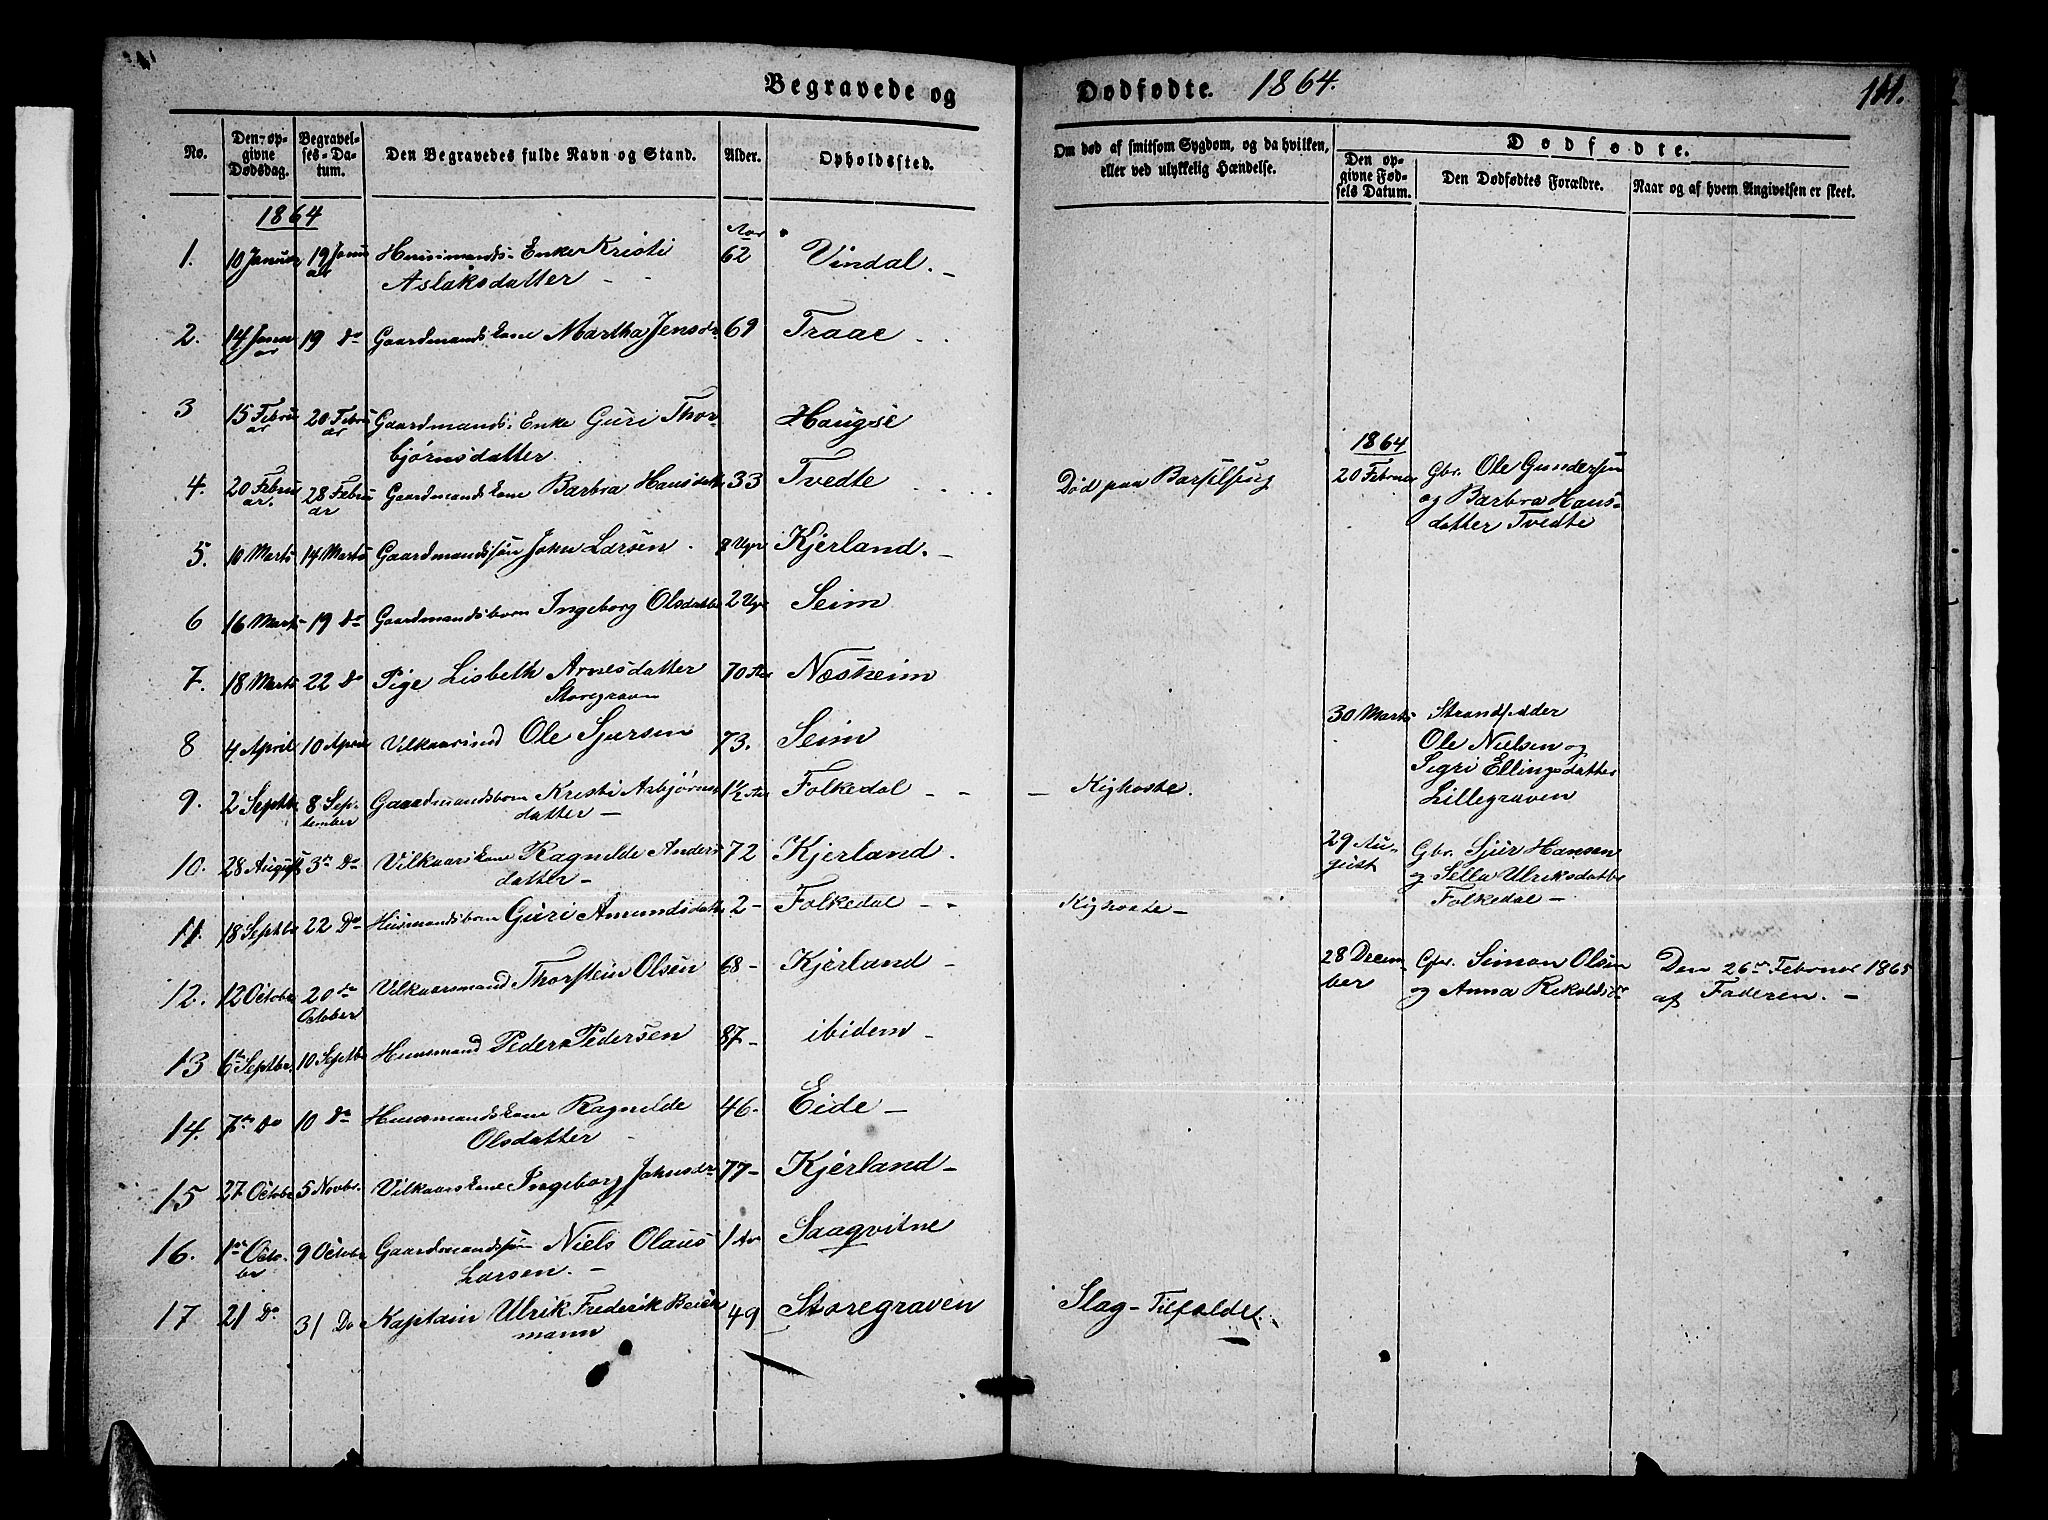 Begravede og Dødfødte. 1864. 111.
No. Den opgivne Dødsdag. Begravelses-Datum. Den Begravedes fulde Navn og Stand. Alder. Opholdssted. Om død af smitsom Sygdom, og da hvilken, eller ved ulykkelig Hændelse. Dødfødte.
Den opgivne Fødsels Datum. Den Dødfødtes Forældre. Naar og af hvem Angivelsen er skeet.
1864
Aar
1. 10 Januar 19 Januar Huusmands-Enke Kristi 62 Vindal. -
Aslaksdatter -
2. 14 Januar 19 Do Gaardmandskone Martha Jensdr 69 Traae
3 15 Februar 20 Februar Gaardmands-Enke Guri Thor-
bjørnsdatter Haugse
4. 20 Februar. 28 Februar Gaardmandskone Barbra Hansdatter 33 Tvedte Død paa Barselseng
5. 10 Marts 14 Marts Gaardmandssøn John Larsen 8 Uger Kjerland. -
6 16 Marts 19 Do Gaardmandsbarn Ingeborg Olsdatter 2 Uger Seim
7. 18 Marts 22 Do Pige Lisbeth Arnesdatter 70 Aar Næsheim
Storegraven
8 4 April 10 April Vilkaarmd Ole Sjursen 73. Seim
9. 2 Septbr 8 September Gaardmandsbarn Kristi Asbjørns- 1½ Aar Folkedal - - - Kighoste.
datter -
10. 28 August 3die Do Vilkaarskone Ragnilde Anders- 72 Kjerland.
datter -
11. 18 Septbr 22 Do Huusmandsbarn Guri Amundsdatter 2 - Folkedal - - Kighoste -
12. 12 October 20de October Vilkaarsmand Thorstein Olsen 68 - Kjerland -
13 6te Septbr. 10 Septbr Huusmand Peder Pedersen 87 - ibidem -
14. 7de Do 10 Do Huusmandskone Ragnilde 46 - Eide -
Olsdatter -
15 27 Octobr 5 Novbr. Vilkaarskone Ingeborg Johnsdr 77 - Kjerland -
16. 1ste Octobr 9 Octobr Gaardmandssøn Niels Olaus 1 Aar Saaqvitne
Larsen. -
17 21 Do 31 Do Kaptain Ulrik Frederik Beich- 49 Storegraven Slag-Tilfælde.
mann
1864
20 Februar Gbr. Ole Gundersen
og Barbra Hans-
datter Tvedte
30 Marts Strandsidder
Ole Nielsen og
Sigri Ellingsdatter
Lillegraven
29 August Gbr. Sjur Hansen
og Sella Ulriksdatter
Folkedal -
28 December Gbr. Simon Olsen Den 26de Februar 1865
og Anna af Faderen. -